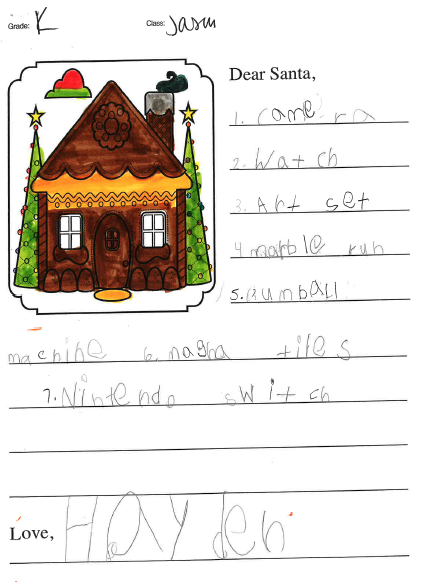 Grade: K Class: Jasm
Dear Santa,
1. camera
2. Watch
3. Art set
4 marble run
5. Gumball
machine 6. magna tiles
7. Nintendo switch
Love, Hayden